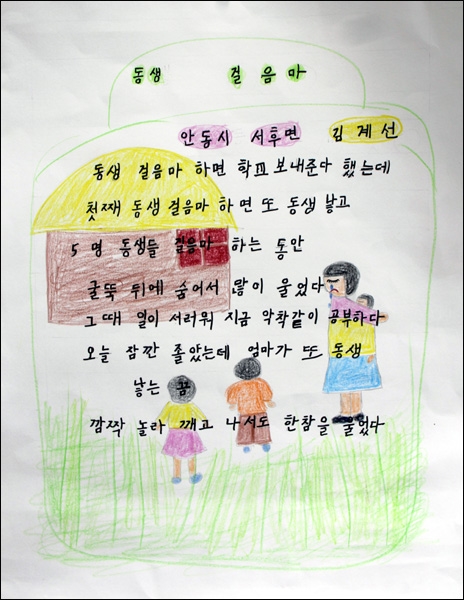 동생 걸음마
안동시 서후면 김계선
동생 걸음마 하면 학교 보내준다 했는데
첫째 동생 걸음마 하면 또 동생 낳고
5 명 동생들 걸음마 하는 동안
굴뚝 뒤에 숨어서 많이 울었다
그때 일이 서러워 지금 악착같이 공부하다
오늘 잠깐 졸았는데 엄마가 또 동생
낳는 꿈
깜짝 놀라 깨고 나서도 한참을 울었다